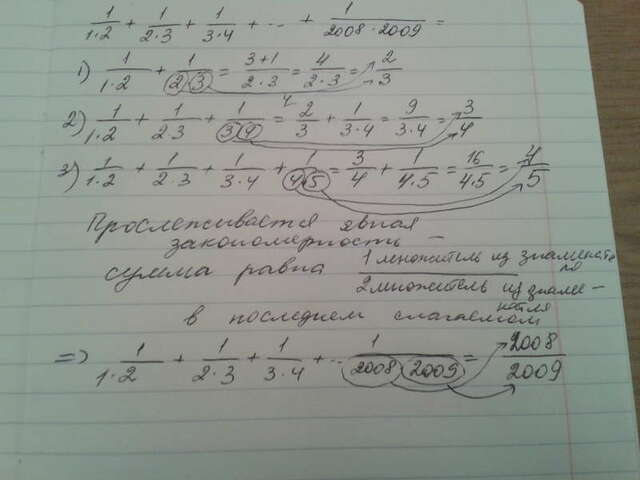 1/1·2 + 1/2·3 + 1/3·4 + ... + 1/2008·2009 =
1) 1/1·2 + 1/2·3 = 3+1/2·3 = 4/2·3 = 2/3
2) 1/1·2 + 1/2·3 + 1/3·4 = 2/3 + 1/3·4 = 9/3·4 = 3/4
3) 1/1·2 + 1/2·3 + 1/3·4 + 1/4·5 = 3/4 + 1/4·5 = 16/4·5 = 4/5
Прослеживается явная
закономерность –
сумма равна 1 множитель из знаменателя / 2 множитель из знаменателя
в последнем слагаемом
=> 1/1·2 + 1/2·3 + 1/3·4 + ... 1/2008·2009 = 2008/2009